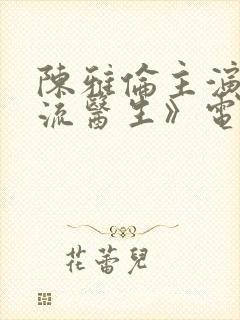 陳雅倫主演
流醫生》電
花蕾兒